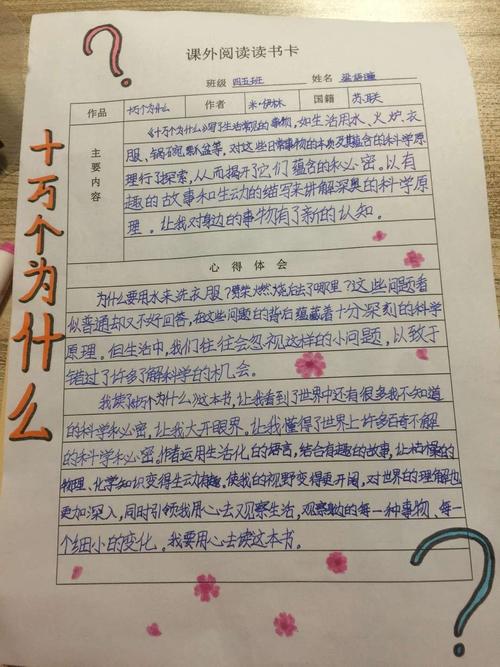 课外阅读读书卡
班级 四五班 姓名
作品 十万个为什么 作者 米·伊林 国籍 苏联
主要内容
《十万个为什么》写了生活常见的事物,如生活用水、火炉、衣
服、锅碗瓢盆等,对这些日常事物的本质及其蕴含的科学原
理行了探索,从而揭开了它们蕴含的秘密。以有
趣的故事和生动的描写来讲解深奥的科学原
理。让我对身边的事物有了新的认知。
心得体会
为什么要用水来洗衣服?燃烧后去了哪里?这些问题看
似普通却又不好回答,在这些问题的背后蕴藏着十分深刻的科学
原理。但生活中,我们往往会忽视这样的小问题,以致于
错过了许多了解科学的机会。
我读《十万个为什么》这本书,让我看到了世界中还有很多我不知道
的科学秘密,让我大开眼界。让我懂得了世界上许多百奇不解
的科学秘密。作者运用生活化的语言,结合有趣的故事,让枯燥的
物理、化学知识变得生动有趣,使我的视野变得更开阔,对世界的理解也
更加深入,同时引领我用心去观察生活,观察身边的每一种事物、每一
个细小的变化。我要用心去读这本书。
十万个为什么
?
?